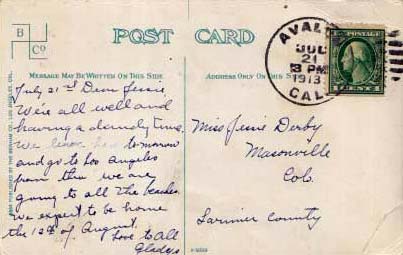 B
Co
POST CARD
MESSAGE MAY BE WRITTEN ON THIS SIDE
ADDRESS ONLY ON THIS SIDE
AVAL
JUL
21
3 PM
1913
CAL
July 21st Dear Jessie,
We're all well and
having a dandy time.
We leave here tomorrow
and go to Los Angeles
from there we are
going to all the beaches.
We expect to be home
the 12th of August.
Love to all
Gladys
Miss Jessie Derby
Masonville
Colo.
Larimer County